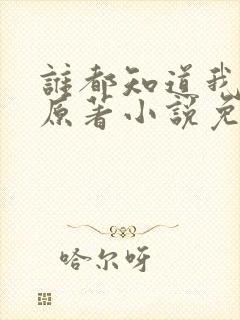 誰都知道我
原著小說免
哈尔呀